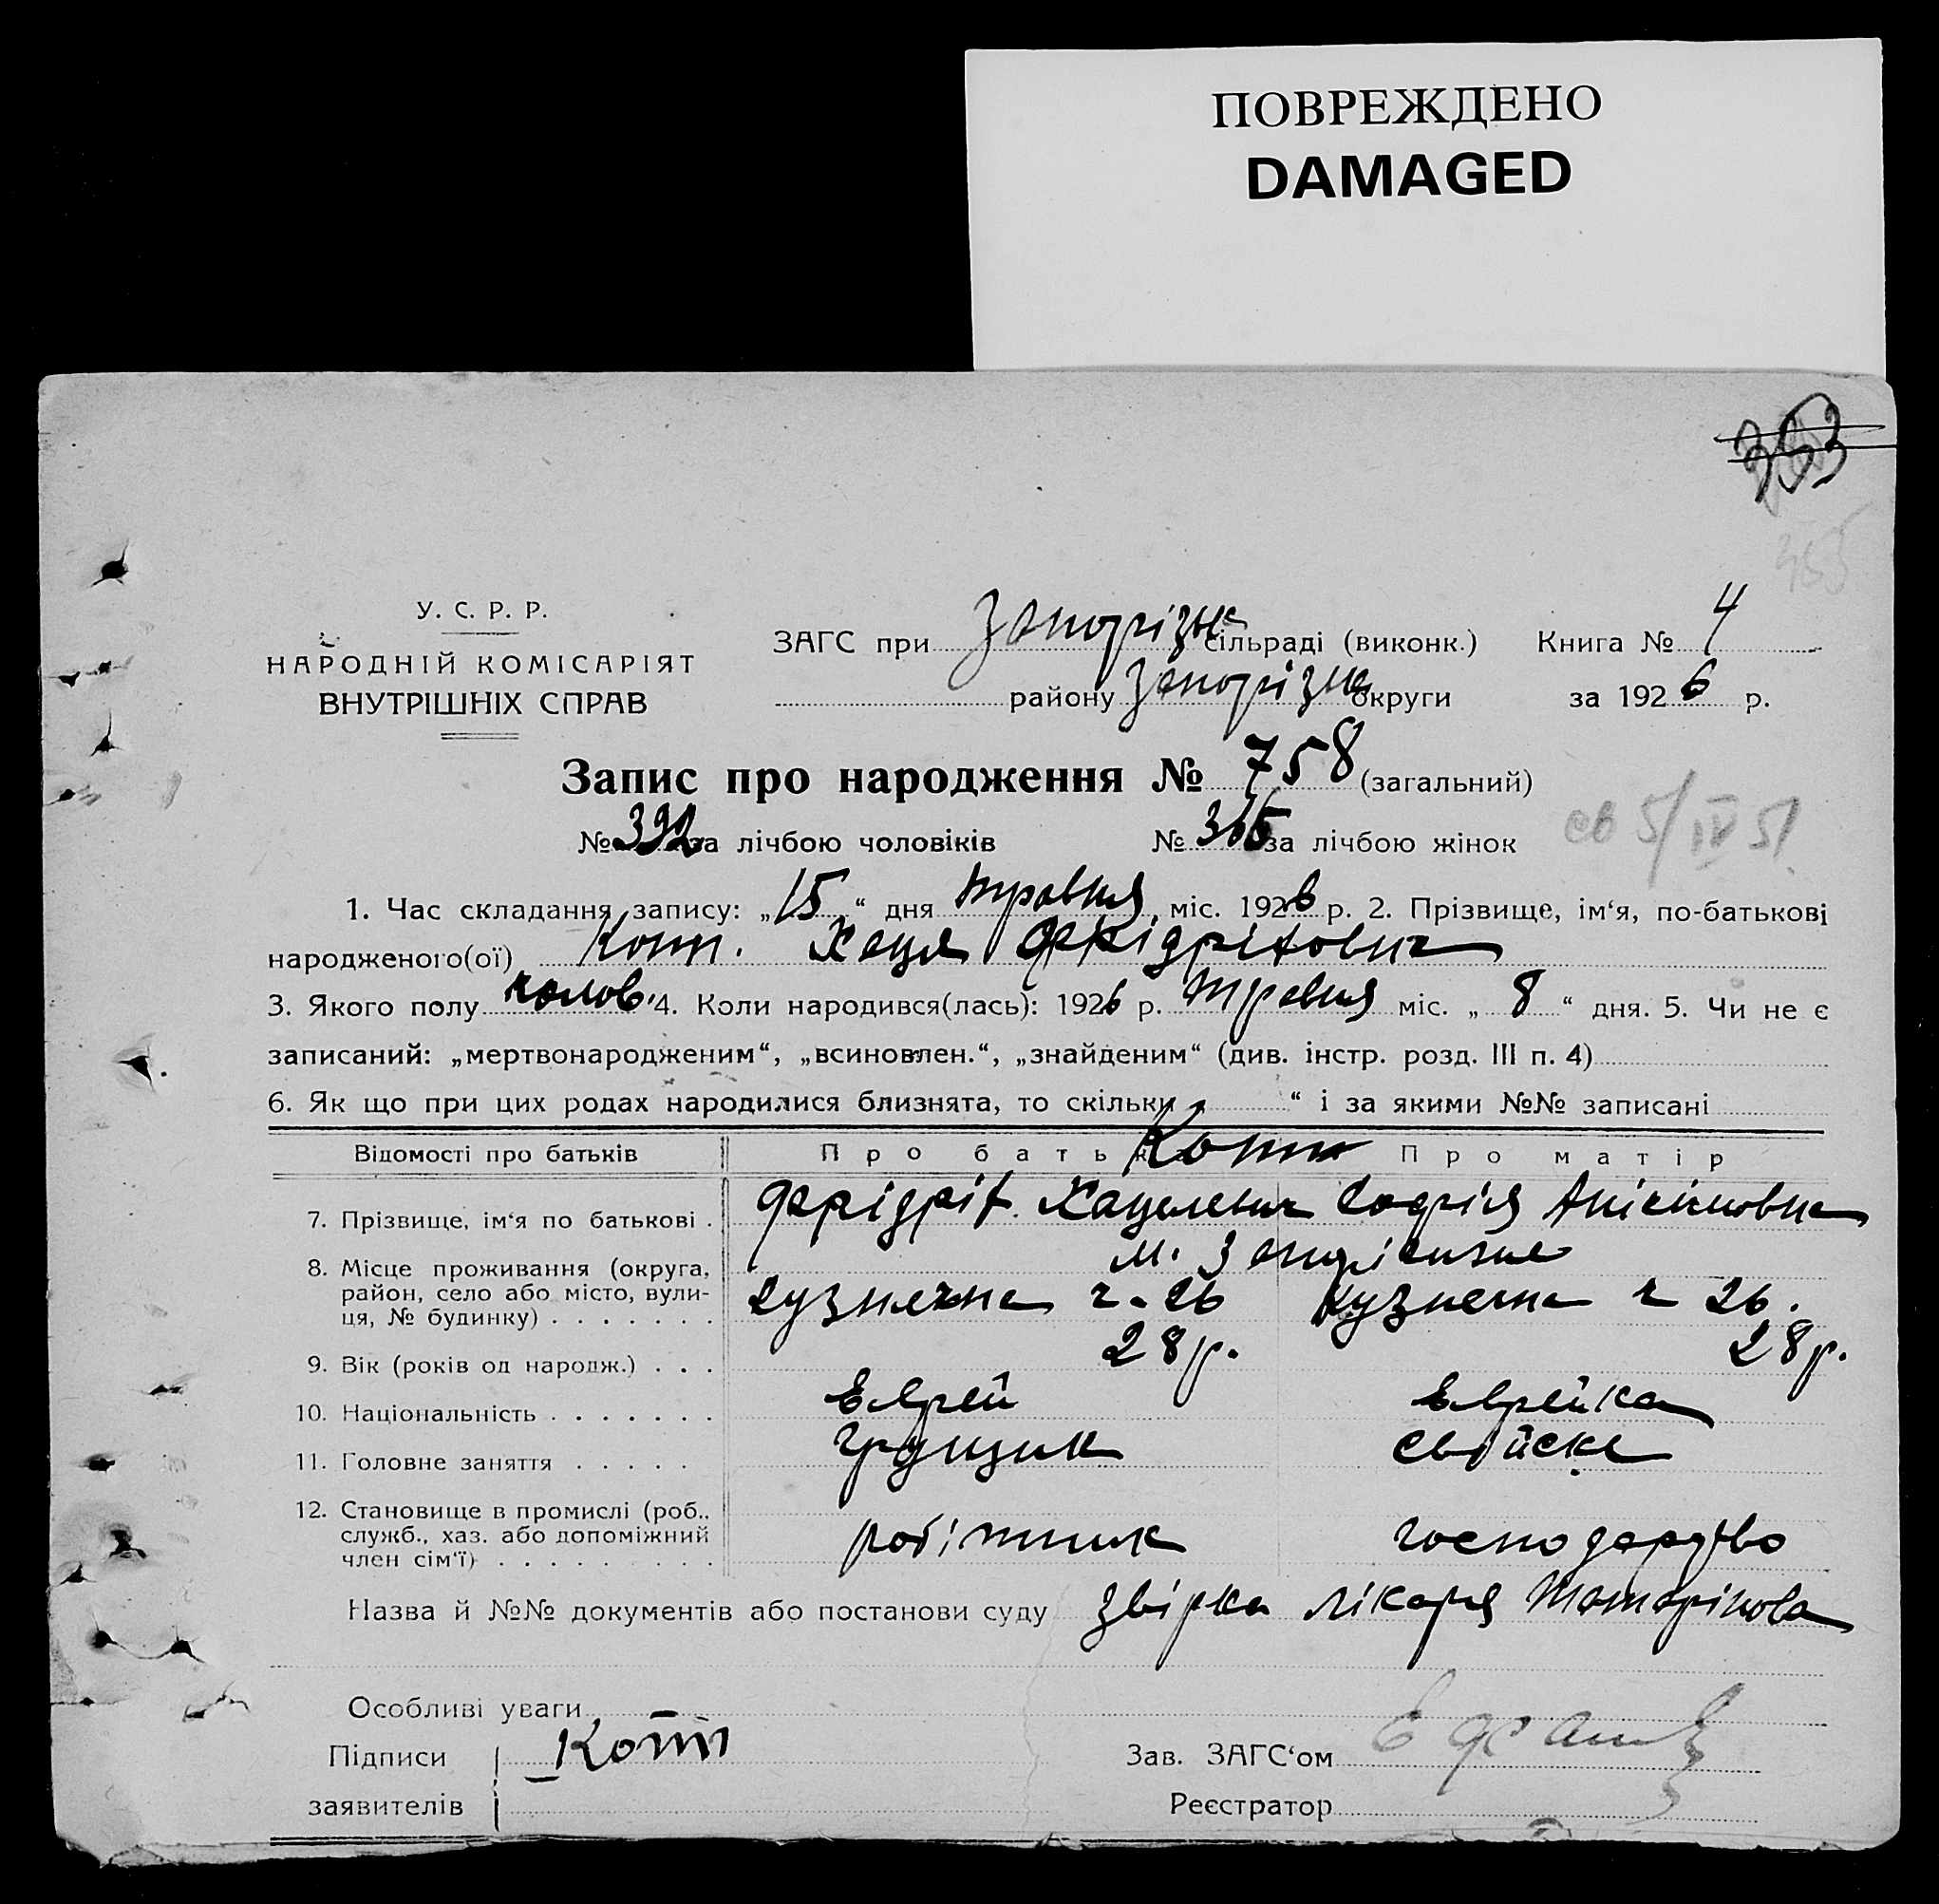 ПОВРЕЖДЕНО
DAMAGED
353
353
У. С. Р. Р.
НАРОДНІЙ КОМІСАРІЯТ
ВНУТРІШНІХ СПРАВ
ЗАГС при Запорізьк сільраді (виконк.) Книга № 4
району Запорізьк округи за 1926 р.
Запис про народження № 758 (загальний)
№ 392 за лічбою чоловіків № 365 за лічбою жінок
св 5/IV 51
1. Час складання запису: „15“ дня травня, міс. 1926 р. 2. Прізвище, ім‘я, по-батькові
народженого(ої) Копт. Хаця Фрідріхович
3. Якого полу чолов. 4. Коли народився(лась): 1926 р. Травня міс. „8“ дня. 5. Чи не є
записаний: „мертвонародженим“, „всиновлен.“, „знайденим“ (див. інстр. розд. III п. 4)
6. Як що при цих родах народилися близнята, то скільки „ “ і за якими №№ записані
Відомості про батьків Про батька Копт Про матір
7. Прізвище, ім‘я по батькові . Фрідріх Хацелевич Софія
8. Місце проживання (округа, м. Запоріжжя
район, село або місто, вули- Кузнечна ч. 26 Кузнечна ч 26.
ця, № будинку) . . . . . . .
9. Вік (років од народж.) . . . 28 р. 28 р.
10. Національність . . . . . . . Еврей Еврейка
11. Головне заняття . . . . . грущик свійске
12. Становище в промислі (роб.,
служб., хаз. або допоміжний робітник господарство
член сім‘ї) . . . . . . . . .
Назва й №№ документів або постанови суду Звірка лікаря Татарінова
Особливі уваги
Підписи Копт Зав. ЗАГС‘ом
заявителів Реєстратор